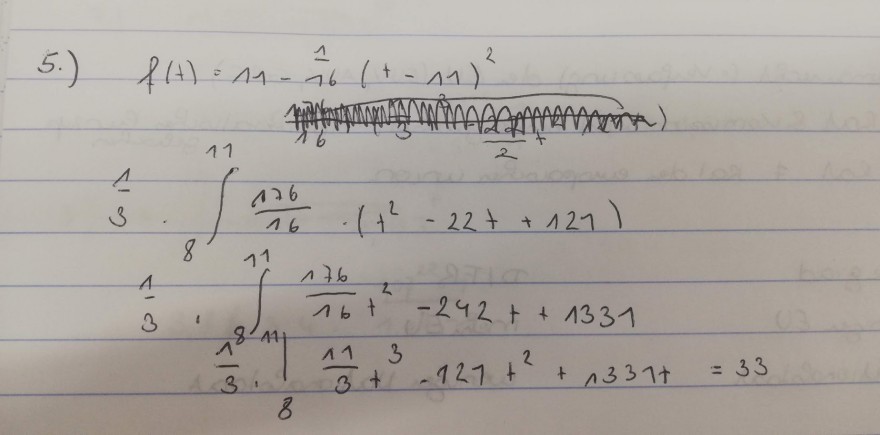 5.) f(t) = 11 - 1/16 (t - 11)²
1/3 · ∫₈¹¹ 176/16 · (t² - 22t + 121)
1/3 · ∫₈¹¹ 176/16 t² - 242t + 1331
1/3 · |₈¹¹ 11/3 t³ - 121t² + 1331t = 33